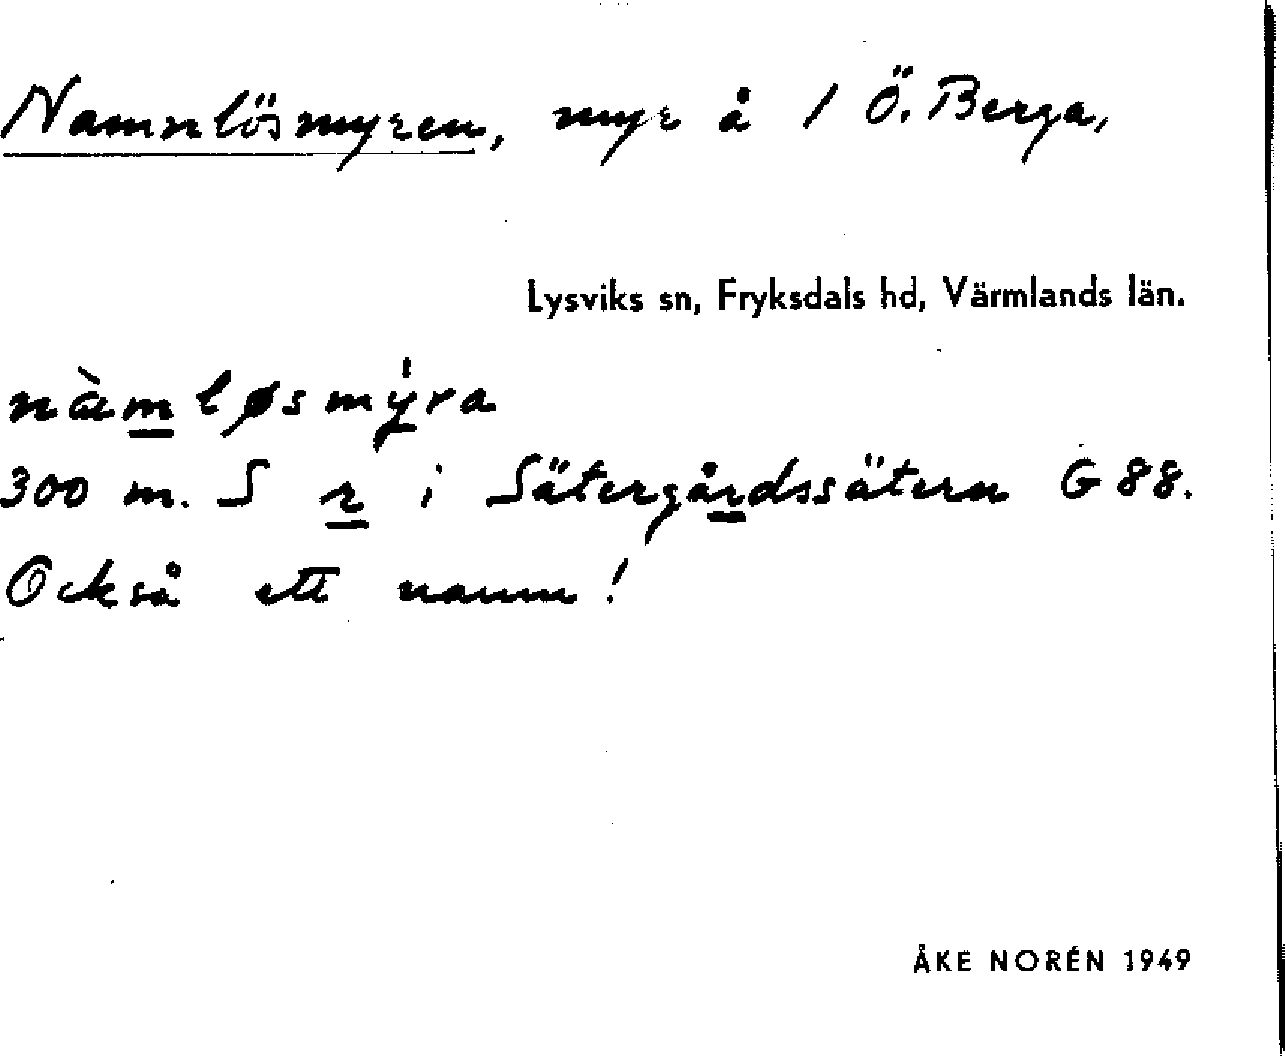 Namnlösmyren, myr å 1 Ö. Berga,
Lysviks sn, Fryksdals hd, Värmlands län.
nàmløsmýra
300 m. S r i Sätergårdssätern G 88.
Också ett namn!
ÅKE NORÉN 1949